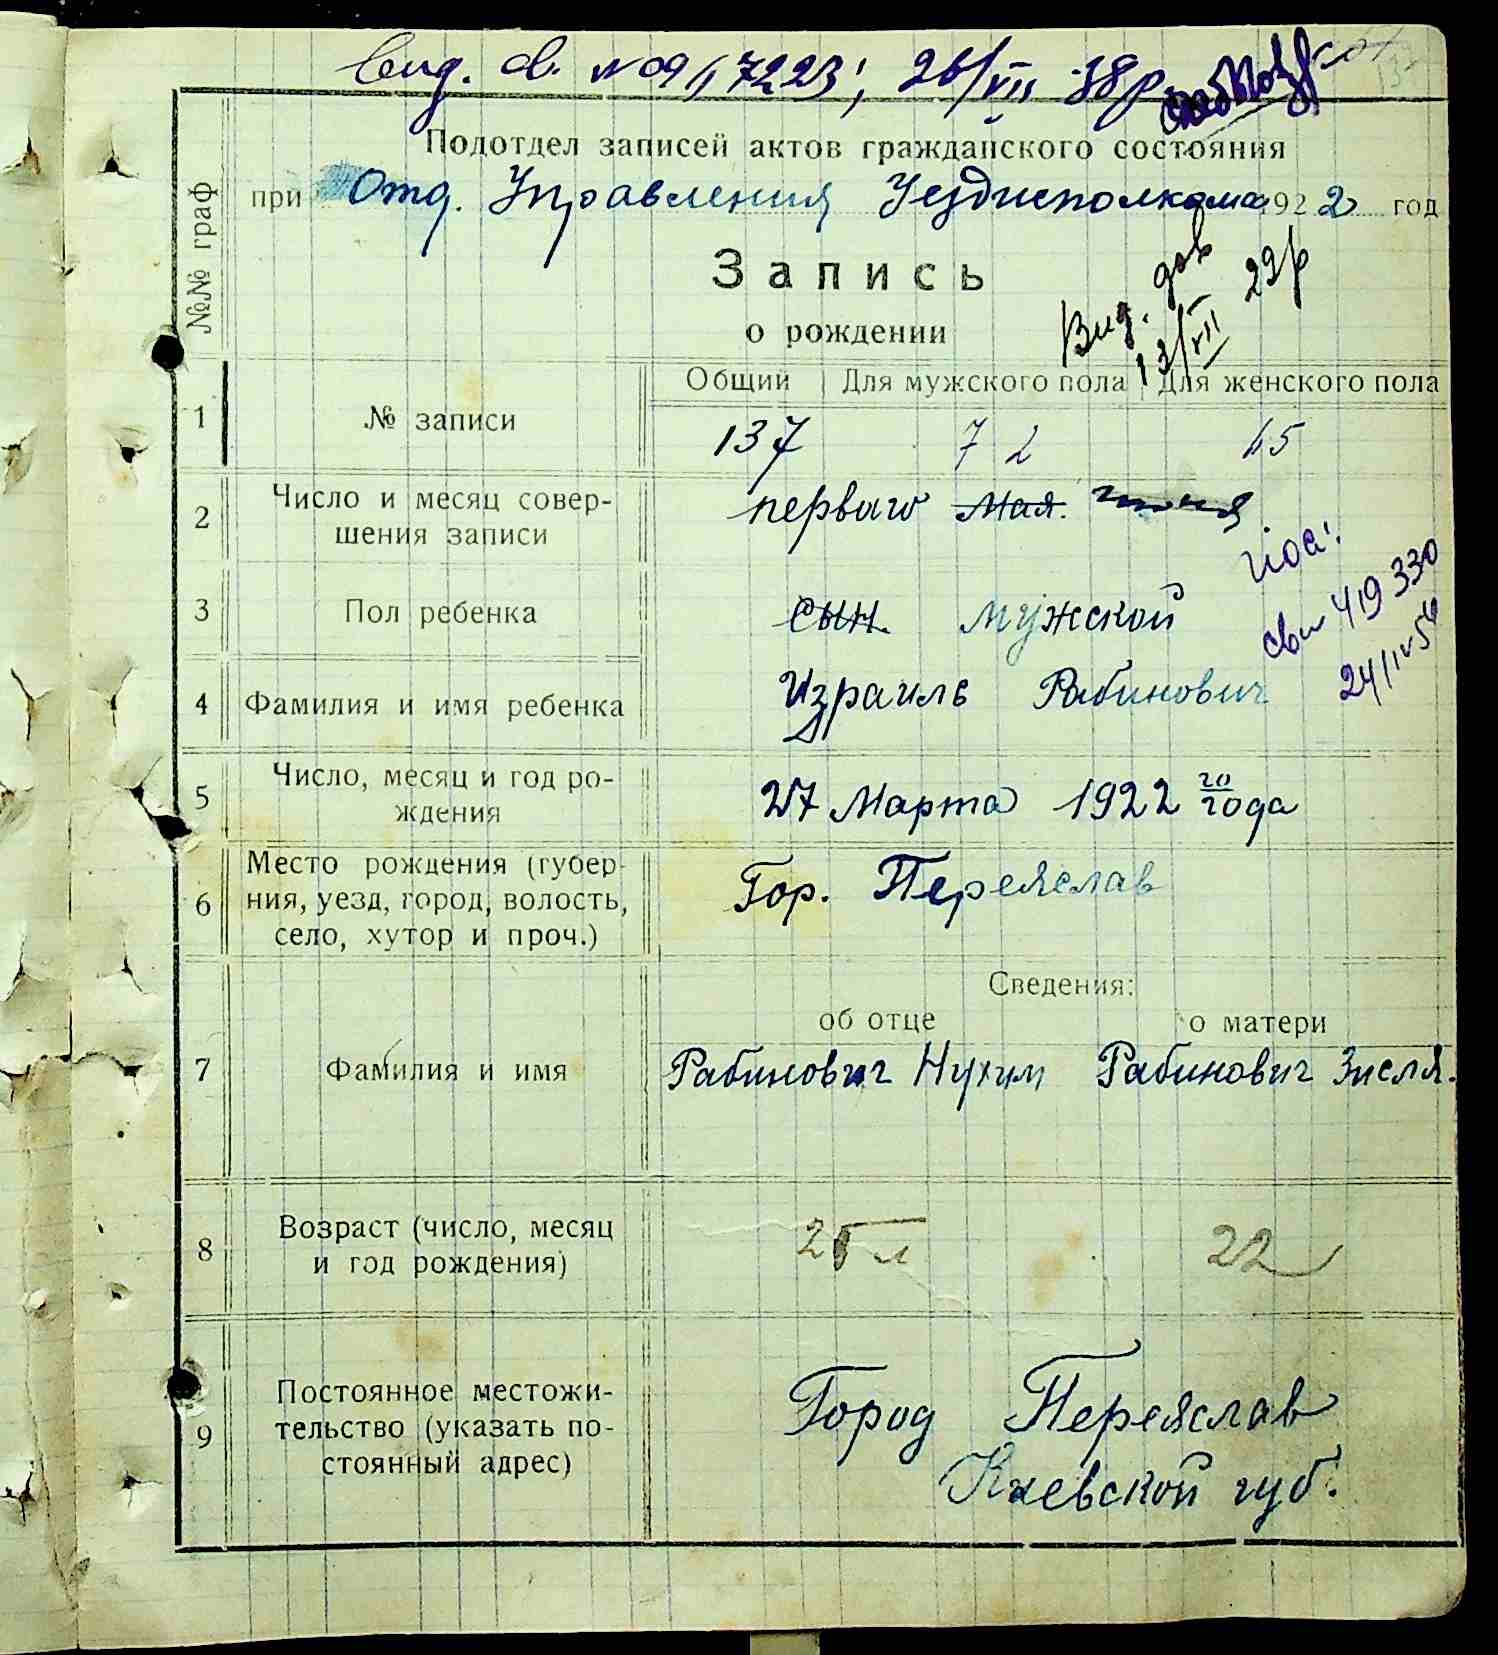 вид. св. № 09/17223; 26/VII 38р
Подотдел записей актов гражданского состояния
при Отд. Управления Уездисполкома 1922 год
№№ граф
Запись
о рождении
Вид. дов
13/VII 29р
Общий Для мужского пола Для женского пола
1 № записи 137 72 65
2 Число и месяц совер-
шения записи первого Мая. июня
3 Пол ребенка сын. мужской
свид 419330
24/IV 54
4 Фамилия и имя ребенка Израиль Рабинович
5 Число, месяц и год ро-
ждения 27 Марта 1922 го года
6 Место рождения (губер-
ния, уезд, город, волость,
село, хутор и проч.) Гор. Переяслав
Сведения:
об отце о матери
7 Фамилия и имя Рабинович Нухим Рабинович Зисля.
8 Возраст (число, месяц
и год рождения) 25 л 22
9 Постоянное местожи-
тельство (указать по-
стоянный адрес) Город Переяслав
Киевской губ.